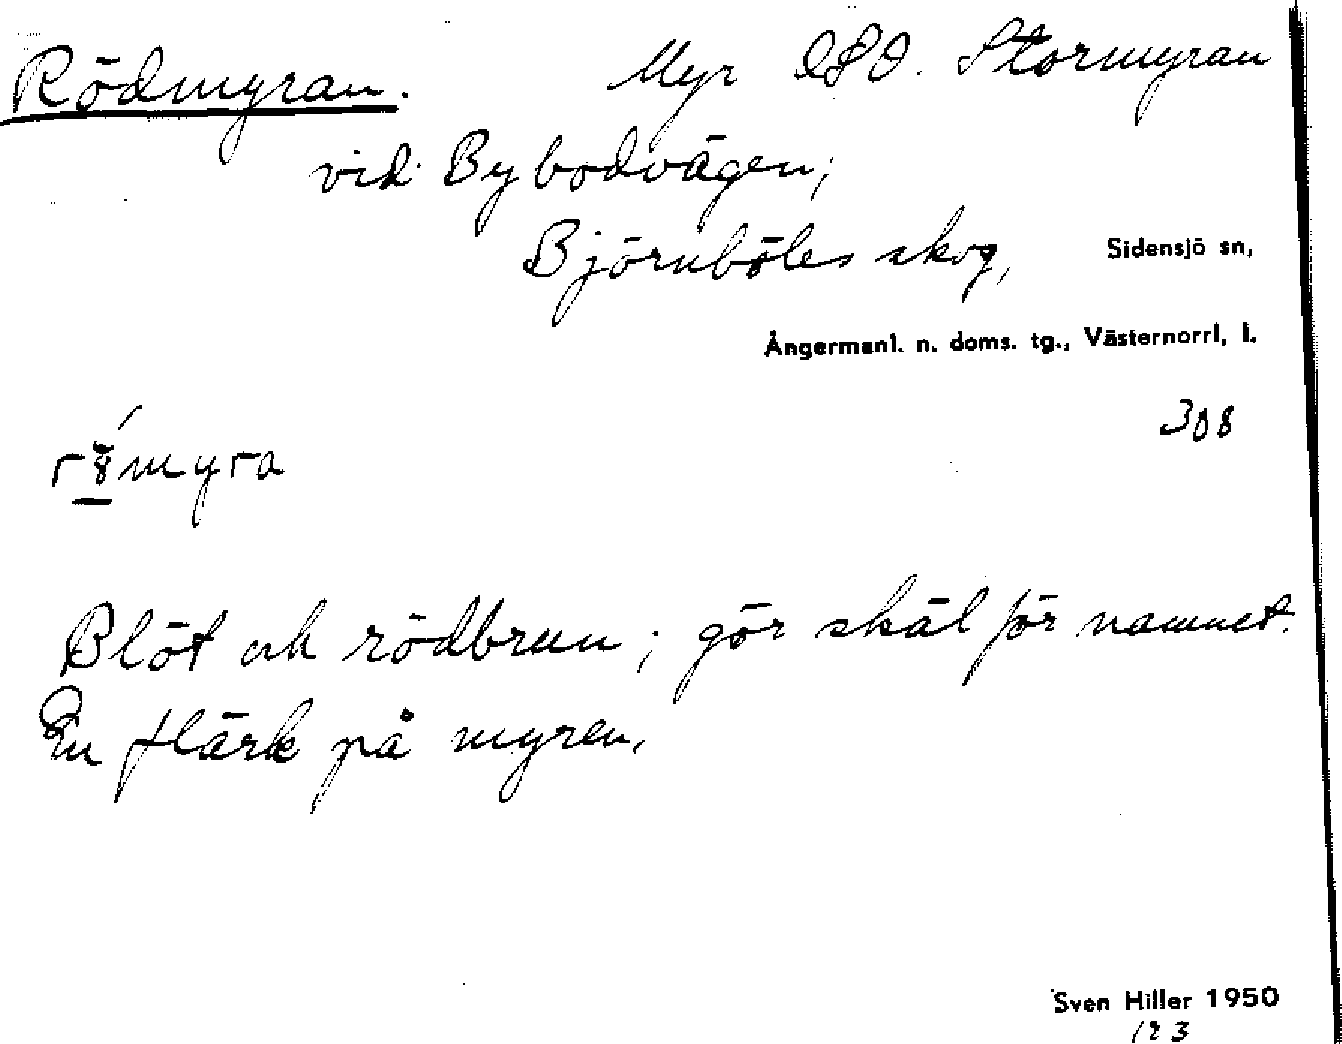 Rödmyran. Myr OSO. Stormyran
vid Bybodvägen;
Björnböles skog, Sidensjö sn,
Ångermanl. n. doms. tg., Västernorrl. l.
308
myra
Blöt och rödbrun; gör skäl för namnet.
En flärk på myren.
Sven Hiller 1950
123